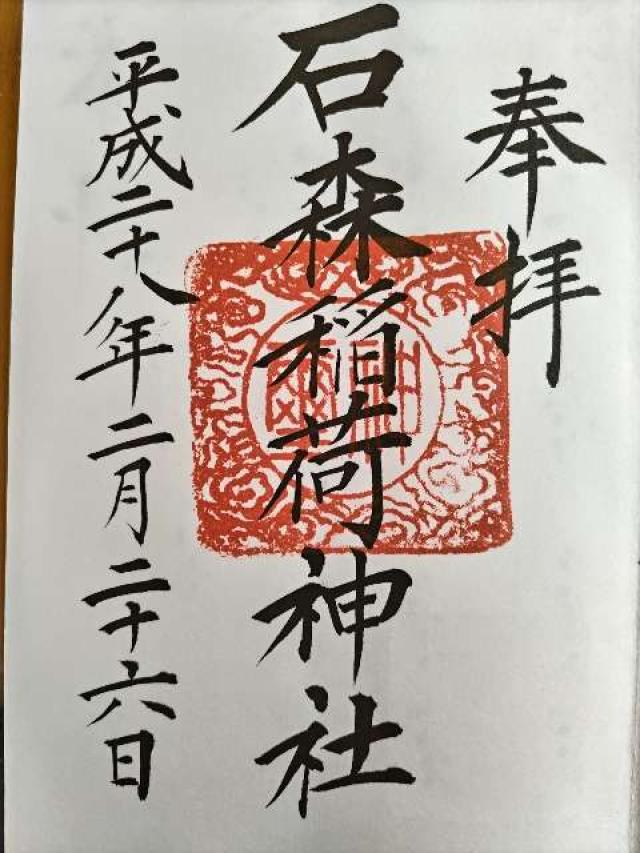 奉拝
石森稲荷神社
平成二十八年二月二十六日